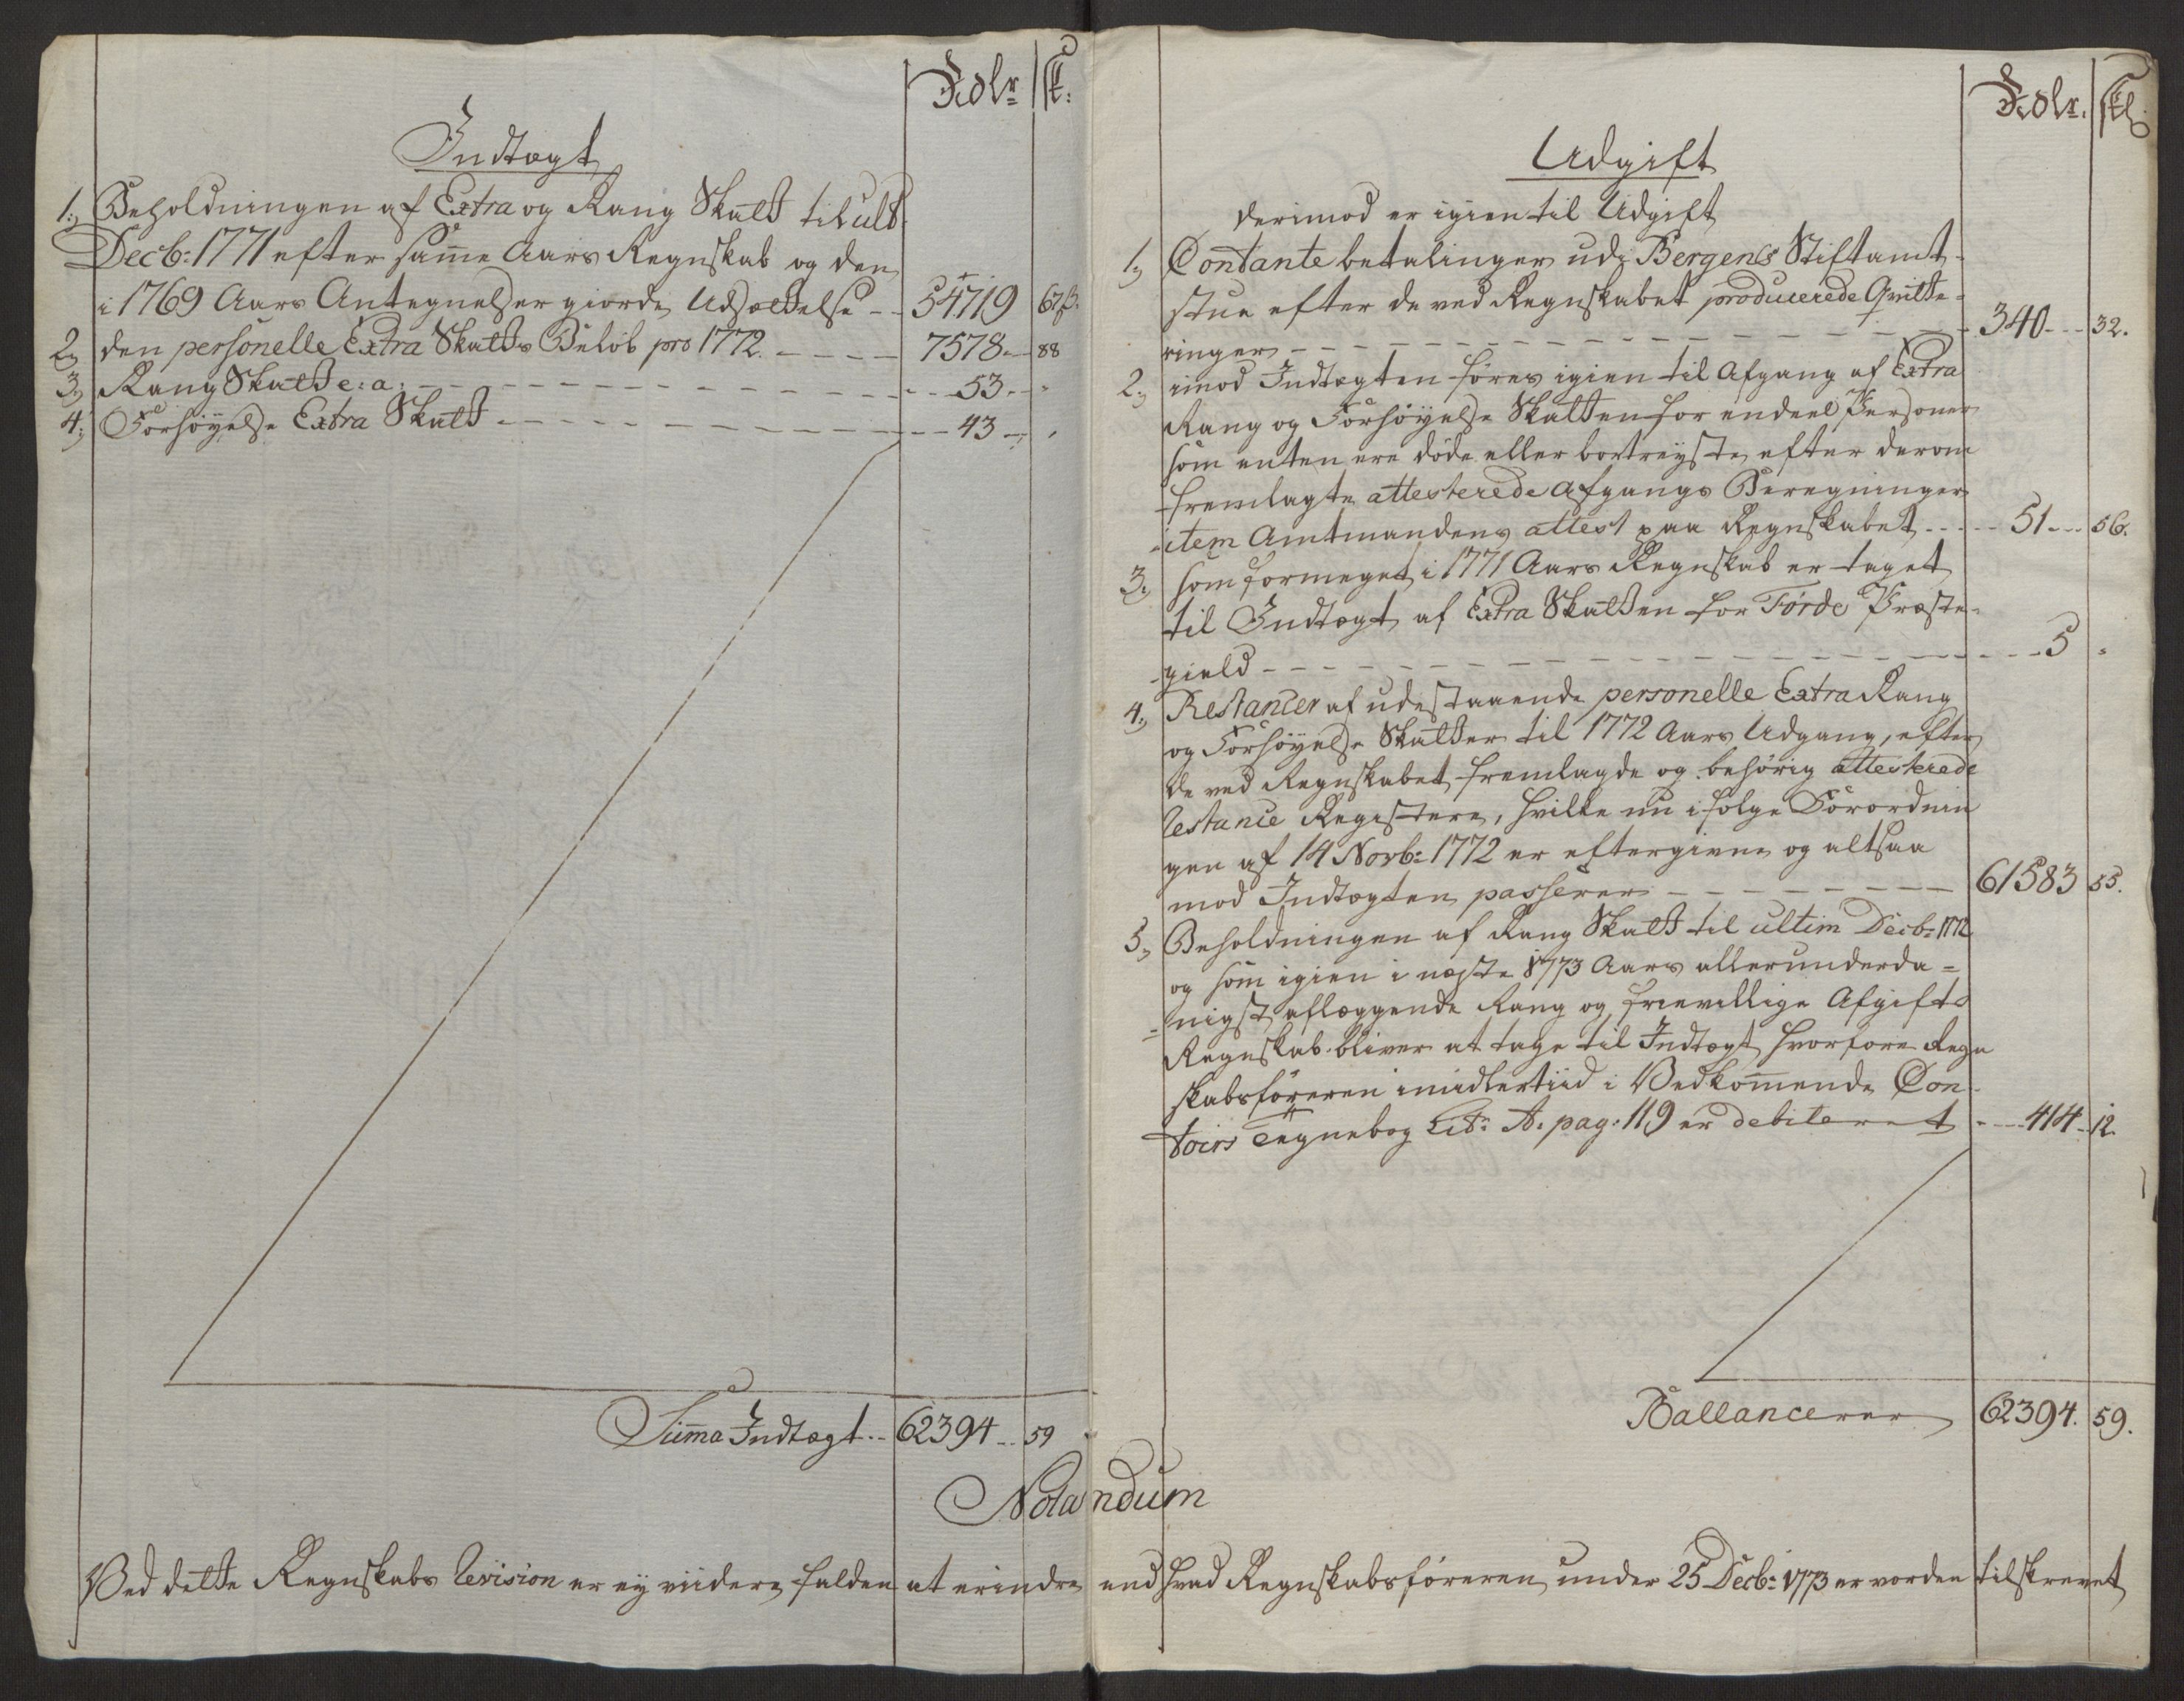 Rdlr sk:
Indtægt
1., Beholdningen af Extra og Rang Skatt til ult
Decb: 1771 efter samme Aars Regnskab og den
i 1769 Aars Antegnelser giorde Udsættelse -- 54719 67 ß.
2., den personelle Extra Skatts Beløb pro 1772. ---- 7578 -- 88
3., Rang Skatt e: a: ---- 53 -- "
4., Forhøyelse Extra Skatt ---- 43 -- "
Summa Indtægt .. 62394 .. 59
Rdlr. skl
Udgift
derimod er igien til Udgift
1., Contante betalinger udj Bergens Stiftamt-
stue efter de ved Regnskabet producerede Qvitte-
ringer ---- 340 --- 32.
2., imod Indtægten føres igien til Afgang af Extra
Rang og Forhøyelse Skatten for endeel Personer
som enten ere døde eller bortreyste, efter derom
fremlagte attesterede Afgangs Beregninger
item Amtmandens attest paa Regnskabet ---- 51 --- 56.
3., som formeget i 1771 Aars Regnskab er taget
til Indtægt af Extra Skatten for Førde Præste-
gield ---- 5 "
4., Restancer af udestaaende personelle Extra Rang
og Forhøyelse Skatter til 1772 Aars Udgang, efter
de ved Regnskabet fremlagde og behørig attesterede
Restance Registere, hvilke nu i følge Forordnin
gen af 14 Novb: 1772 er eftergivne og altsaa
mod Indtægten passerer ---- 61583 55.
5., Beholdningen af Rang Skatt til ultim Decb: 1772
og som igien i næste 1773 Aars allerunderda-
nigst aflæggende Rang og frievillige Afgifts
Regnskab bliver at tage til Indtægt, hvorfore Regn
skabsføreren imidlertiid i Vedkommende Con-
toirs Tegnebog Litr: A. pag: 119 er debiteret ---- 414 .. 12.
Ballancerer 62394. 59.
Notandum
Ved dette Regnskabs Revision er ey viidere falden at erindre end hvad Regnskabsføreren under 25 Decb: 1773 er vorden tilskrevet